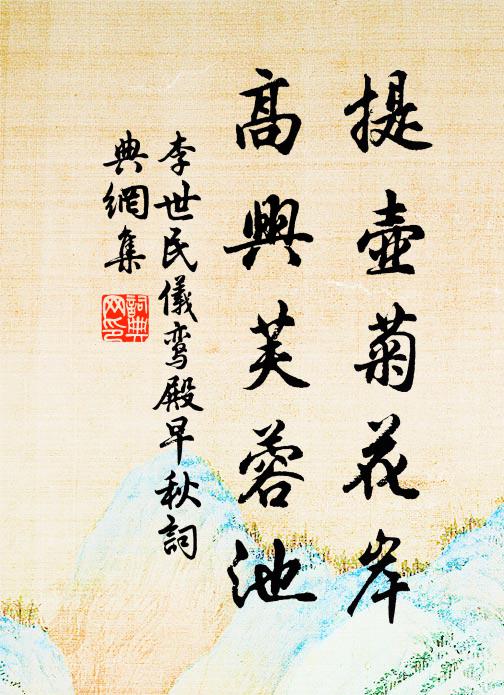 提壺菊花岸
高興芙蓉池
李世民儀鸾殿早秋詞
典網集
詞典
网印